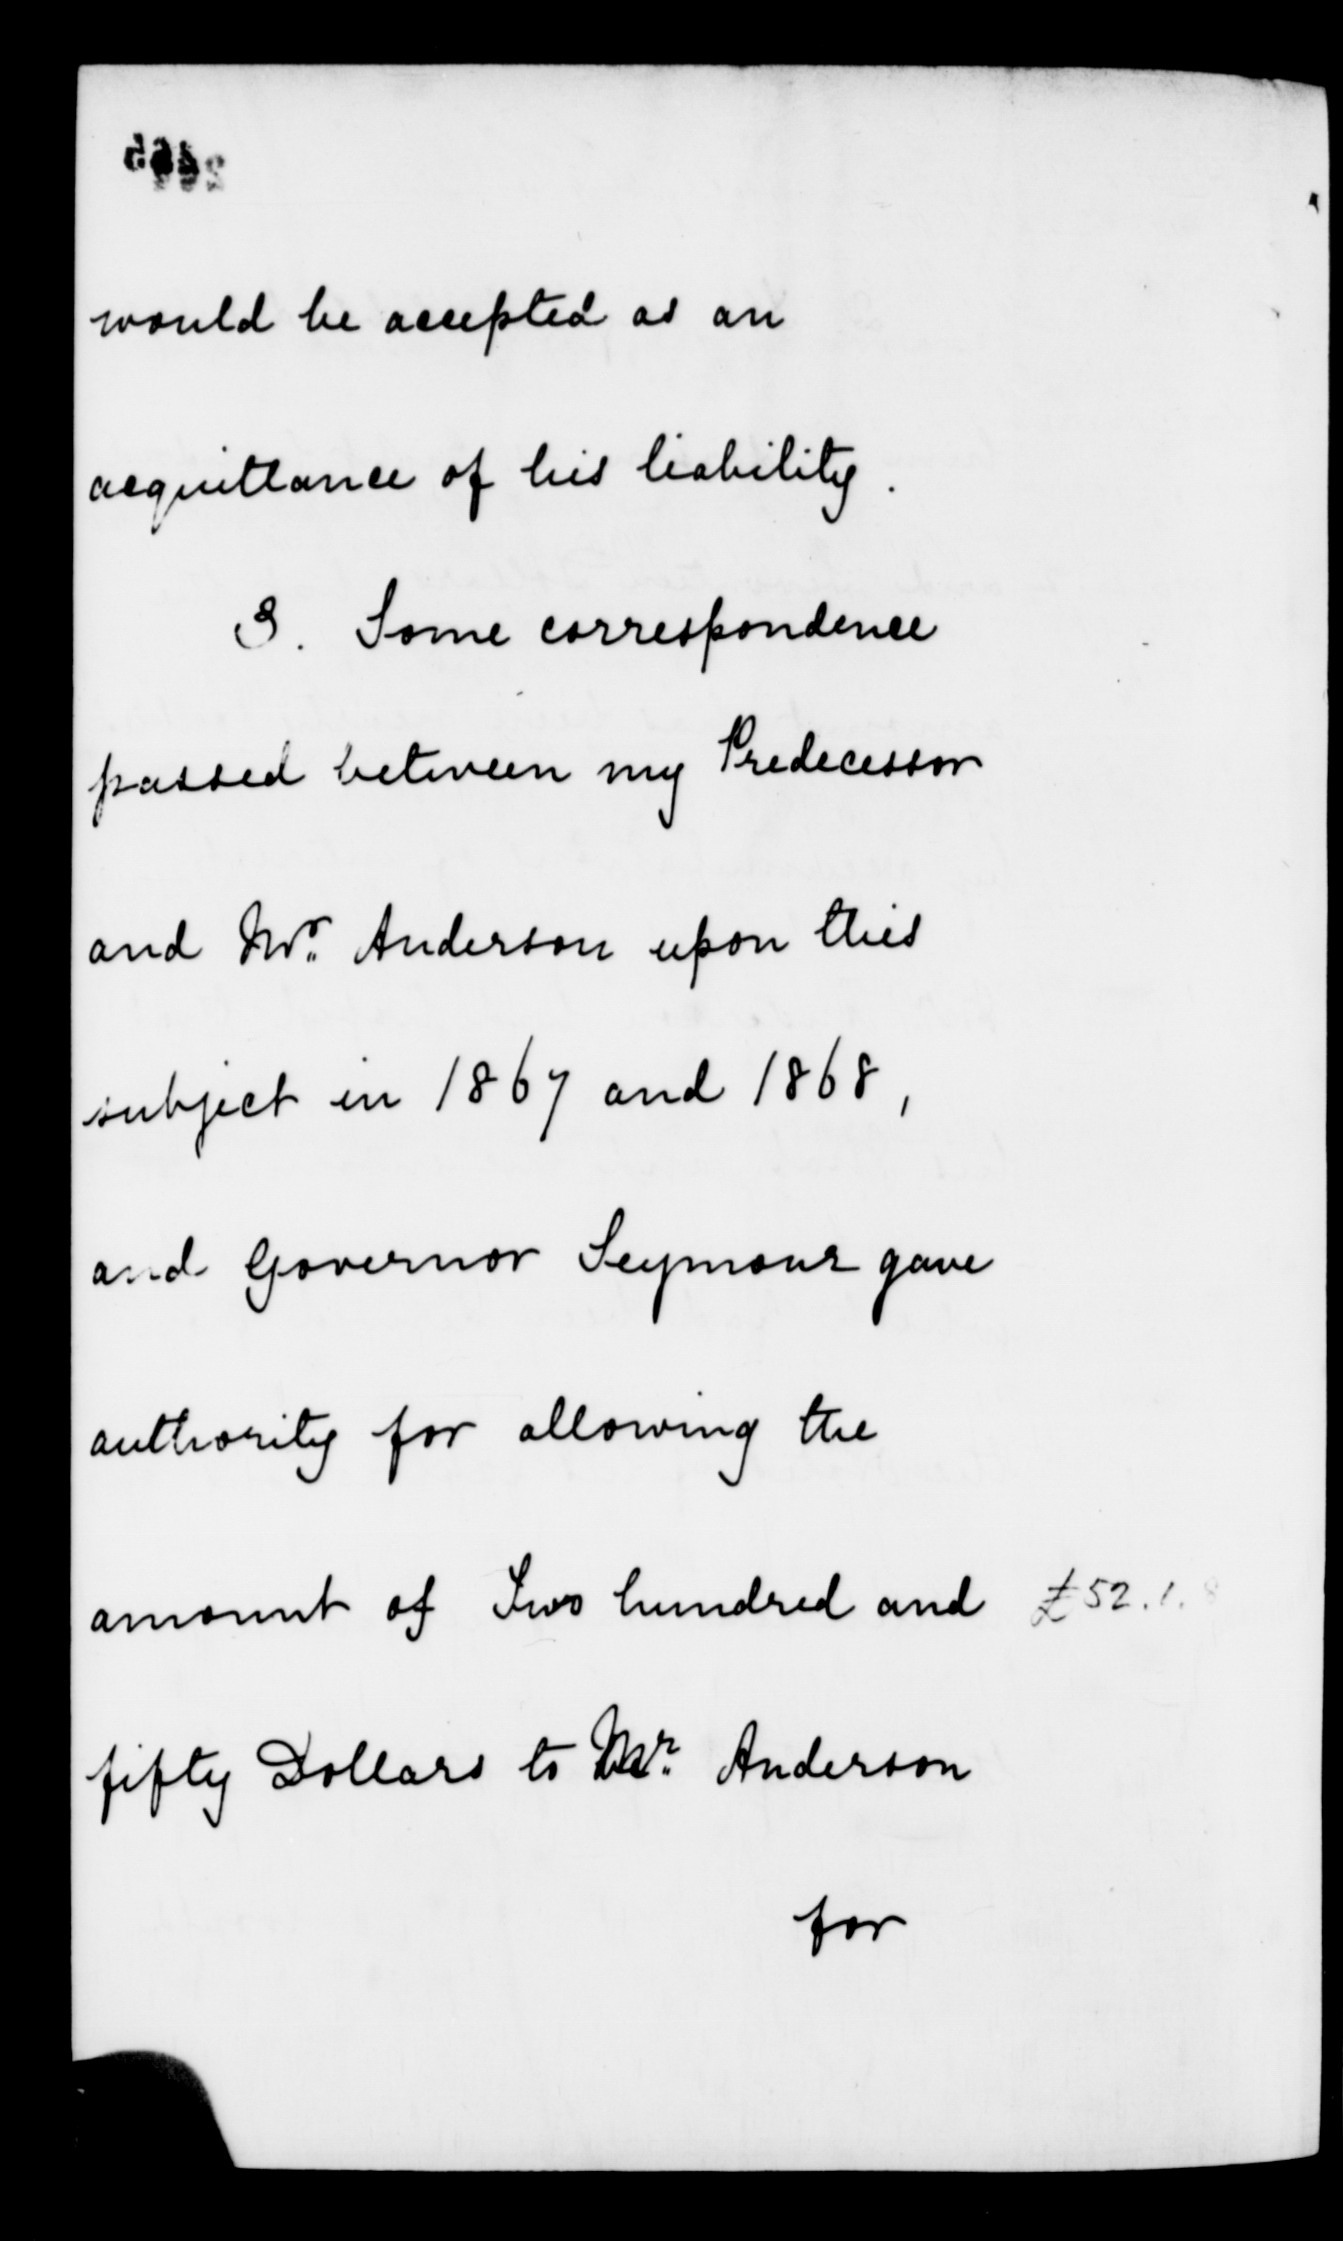 would be accepted as an
acquittance of his liability.
3. Some correspondence
passed between my Predecessor
and Mr. Anderson upon this
subject in 1867 and 1868,
and Governor Seymour gave
authority for allowing the
amount of Two hundred and £52.1.8
fifty Dollars to Mr. Anderson
for